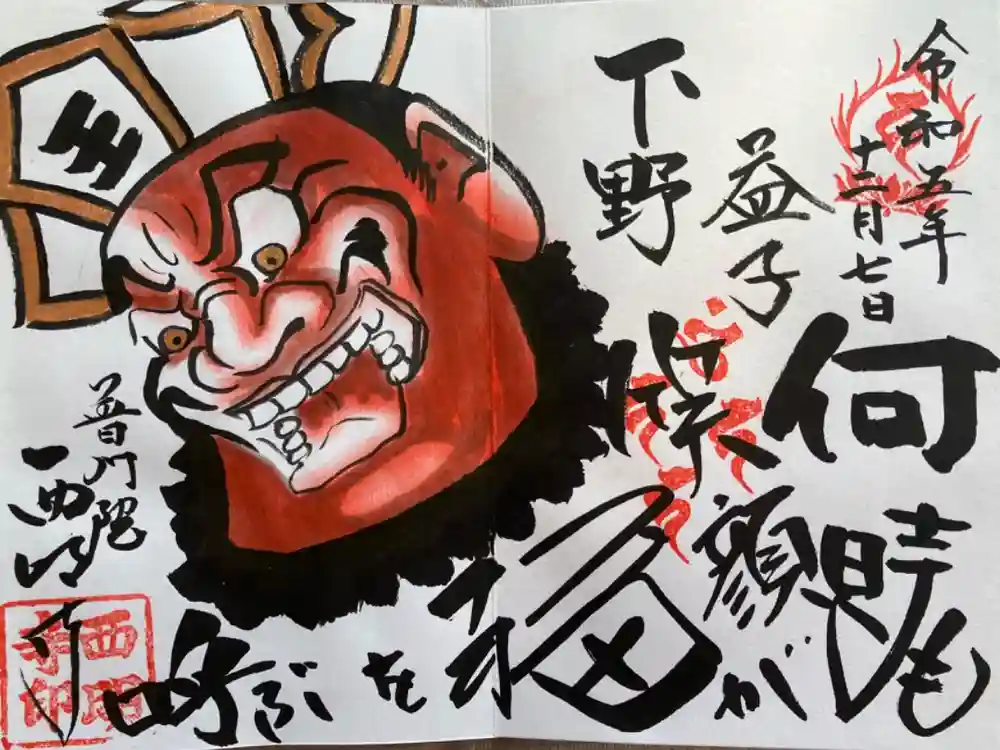 令和五年
十二月七日
下野
益子
何時も
笑顔が
福を
呼ぶ
普門院
西明寺
西明寺印
王